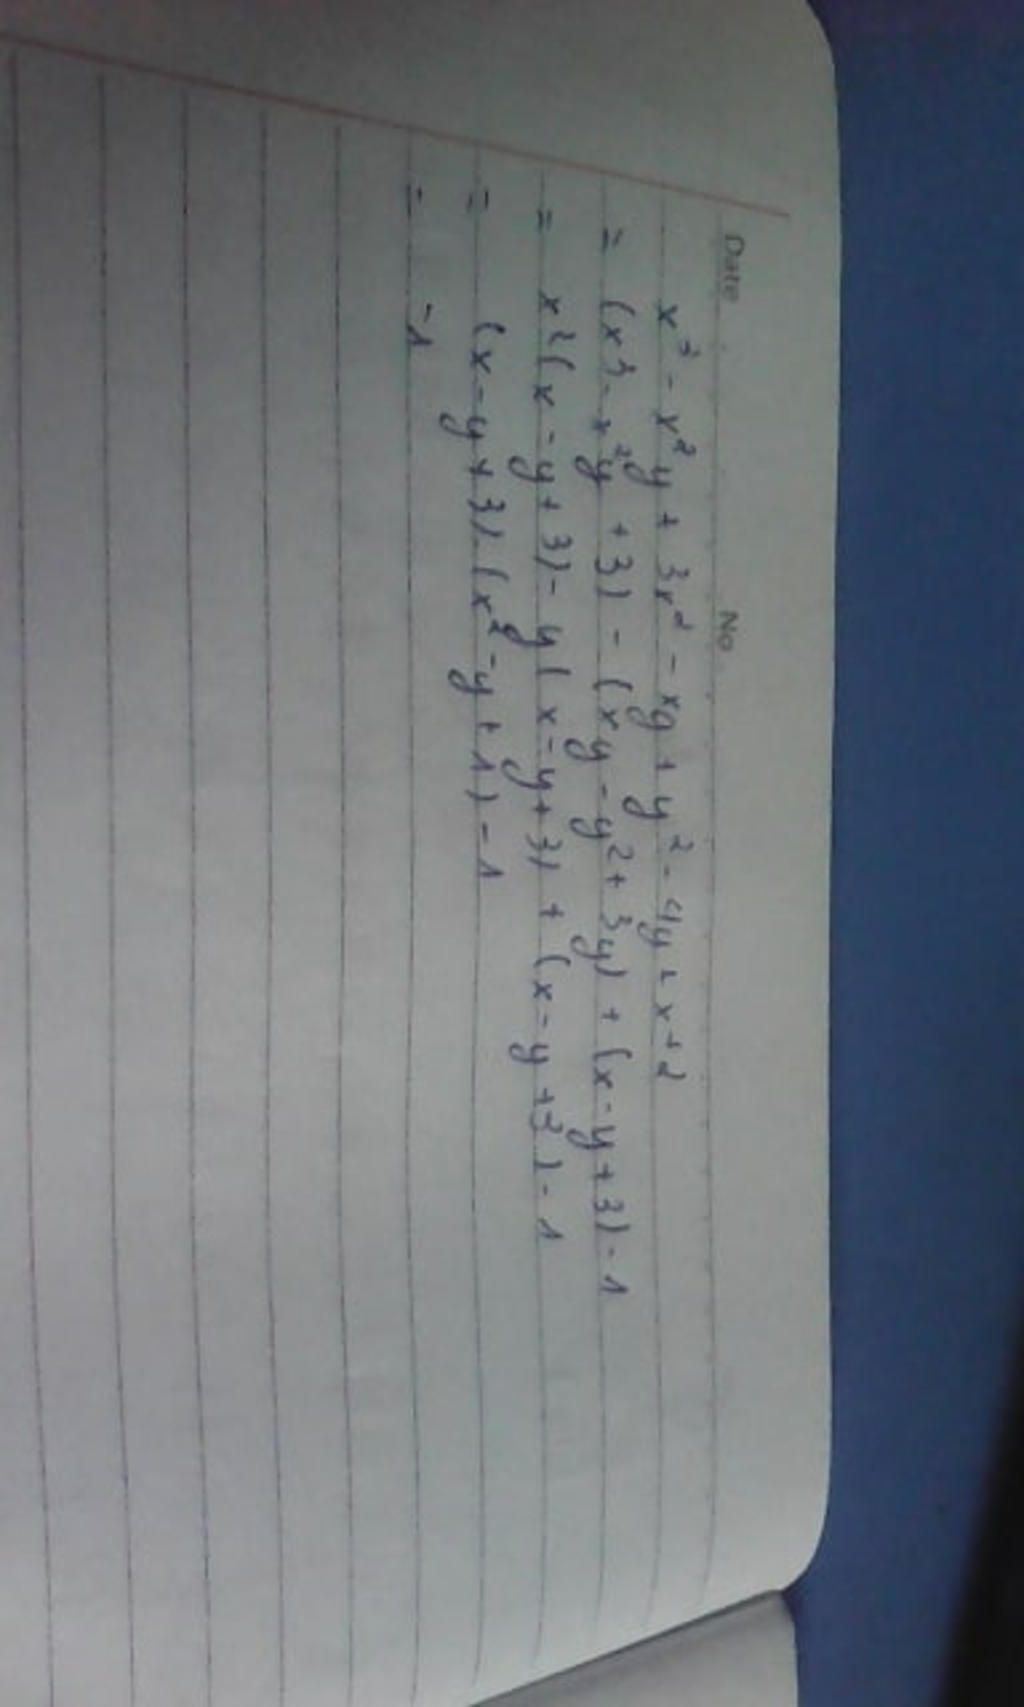 Date No
x³ - x²y + 3x² - xy + y² - 4y + x + 2
= (x³ - x²y + 3) - (xy - y² + 3y) + (x - y + 3) - 1
= x²(x - y + 3) - y(x - y + 3) + (x - y + 3) - 1
= (x - y + 3).(x² - y + 1) - 1
= -1